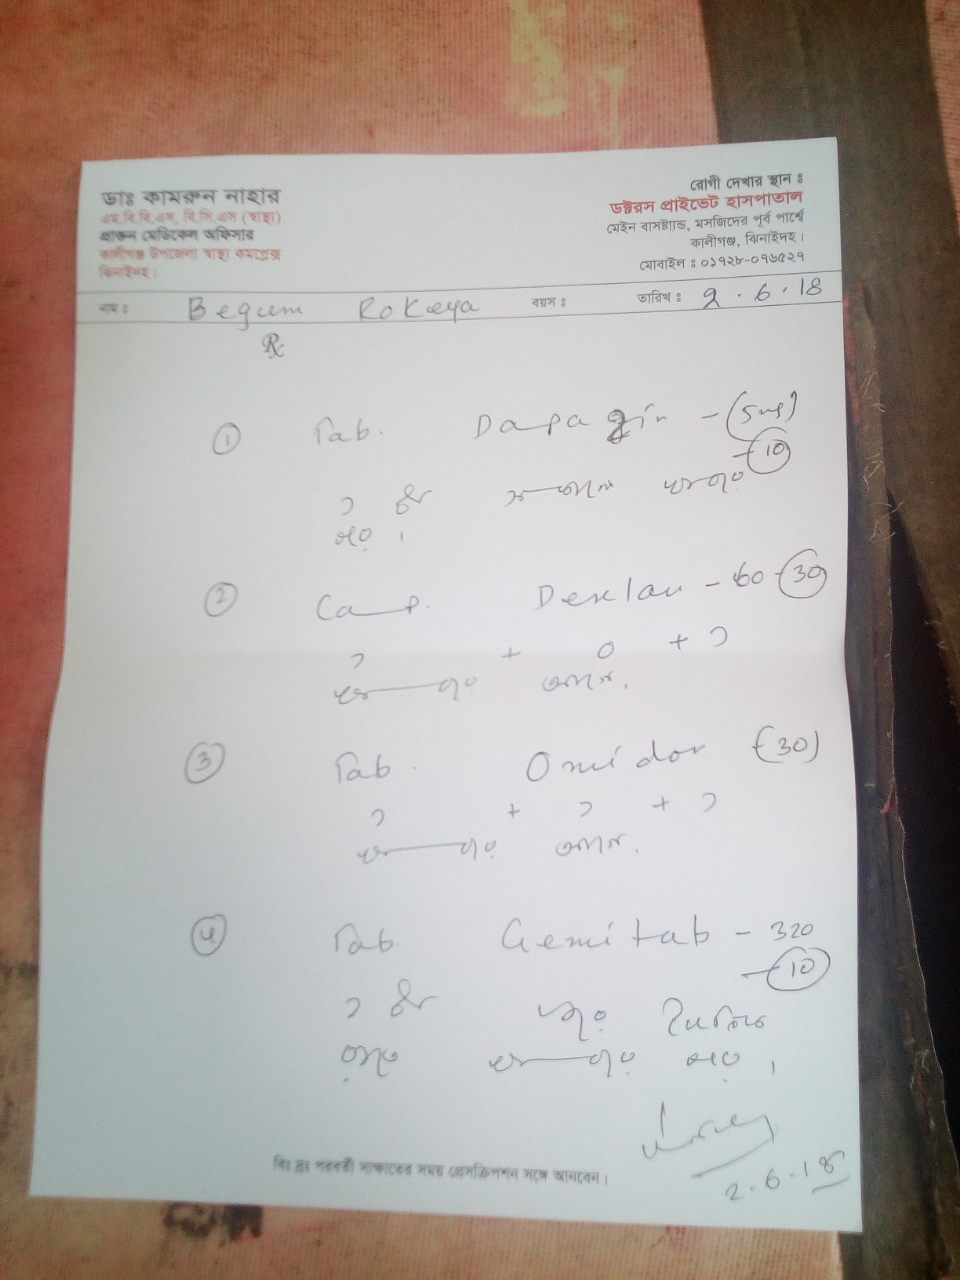 ডাঃ কামরুন নাহার
এম.বি.বি.এস, বি.সি.এস (স্বাস্থ্য)
প্রাক্তন মেডিকেল অফিসার
কালীগঞ্জ উপজেলা স্বাস্থ্য কমপ্লেক্স
ঝিনাইদহ।
রোগী দেখার স্থান ঃ
ডক্টরস প্রাইভেট হাসপাতাল
মেইন বাসষ্ট্যান্ড, মসজিদের পূর্ব পার্শ্বে
কালীগঞ্জ, ঝিনাইদহ।
মোবাইল ঃ ০১৭২৮-০৭৬৫২৭
নাম ঃ Begum Rokeya বয়স ঃ তারিখ ঃ 2.6.18
Rx
1 Tab. Dapagin - (5mg)
- 10
১ টা সকালে খাওয়ার
পর।
2 Cap. Dexlan - 60 - 30
১ + 0 + ১
খাওয়ার আগে।
3 Tab. Omidon (30)
১ + ১ + ১
খাওয়ার আগে।
4 Tab Gemitab - 320
- 10
১ টা
খাওয়ার পর।
2.6.18
বিঃ দ্রঃ পরবর্তী সাক্ষাতের সময় প্রেসক্রিপশন সঙ্গে আনবেন।